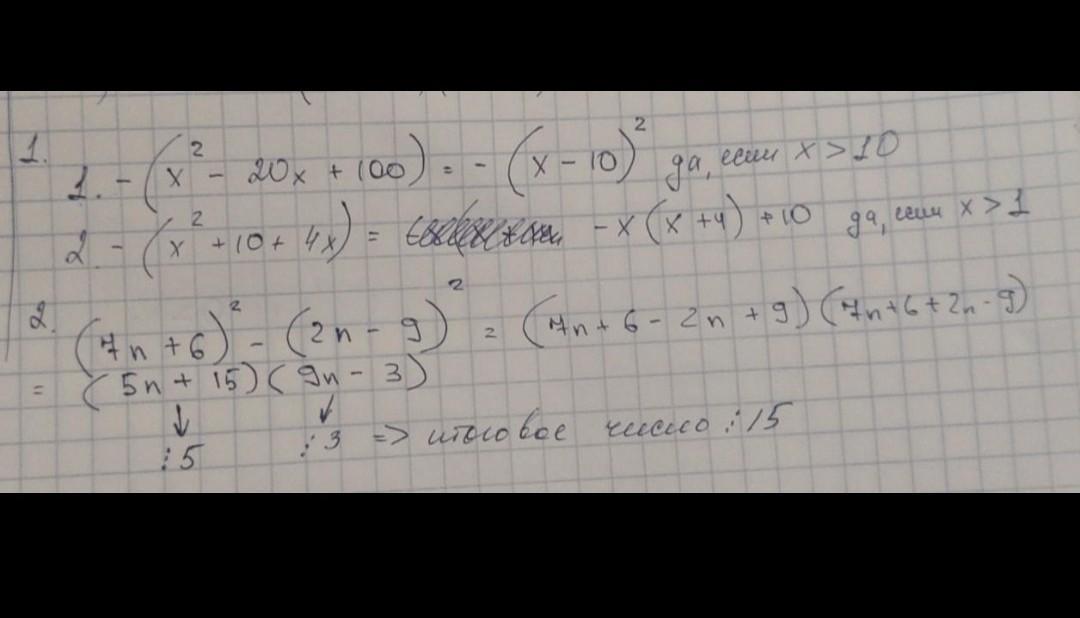 1.
1. -(x² - 20x + 100) = -(x - 10)² да, если x > 10
2. -(x² + 10 + 4x) = -x(x + 4) + 10 да, если x > 1
2.
(7n + 6)² - (2n - 9)² = (7n + 6 - 2n + 9)(7n + 6 + 2n - 9)
= (5n + 15)(9n - 3)
↓ ↓
⋮5 ⋮3 => итоговое число ⋮15